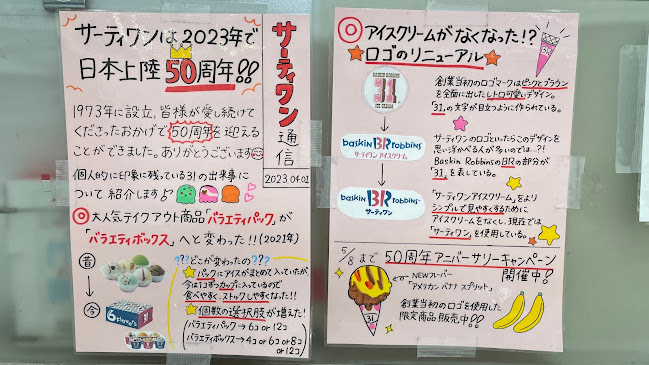 サーティワンは2023年で
日本上陸50周年!!
サーティワン通信
2023.04.01
1973年に設立、皆様が愛し続けて
くださったおかげで50周年を迎える
ことができました。ありがとうございます
個人的に印象に残っている31の出来事に
ついて紹介します♪
◎大人気テイクアウト商品「バラエティパック」が
「バラエティボックス」へと変わった!!(2021年)
昔
今
6 flavors
???どこが変わったの???
★パックにアイスがまとめて入っていたが、
今は1コずつカップに入っているので
食べやすく、ストックしやすくなった!!
★個数の選択肢が増えた!
バラエティパック→6コor12コ
バラエティボックス→4コor6コor8コ
or12コ
◎アイスクリームがなくなった!?
★ロゴのリニューアル★
BASKIN ROBBINS
31
ICE CREAM
創業当初のロゴマークはピンクとブラウン
を全面に出したレトロ可愛いデザイン。
「31」の文字が目立つように作られている。
baskin BR robbins
サーティワン アイスクリーム
サーティワンのロゴといったらこのデザインを
思い浮かべる人が多いのでは…?!
Baskin RobbinsのBRの部分が
「31」を表している。
baskin BR robbins
サーティワン
「サーティワンアイスクリーム」をより
シンプルで見やすくするために
アイスクリームをなくし、現在では
「サーティワン」を使用している。
5/8まで 50周年アニバーサリーキャンペーン
開催中!
NEWフレーバー
"アメリカン バナナ スプリット"
31
創業当初のロゴを使用した
限定商品販売中!!